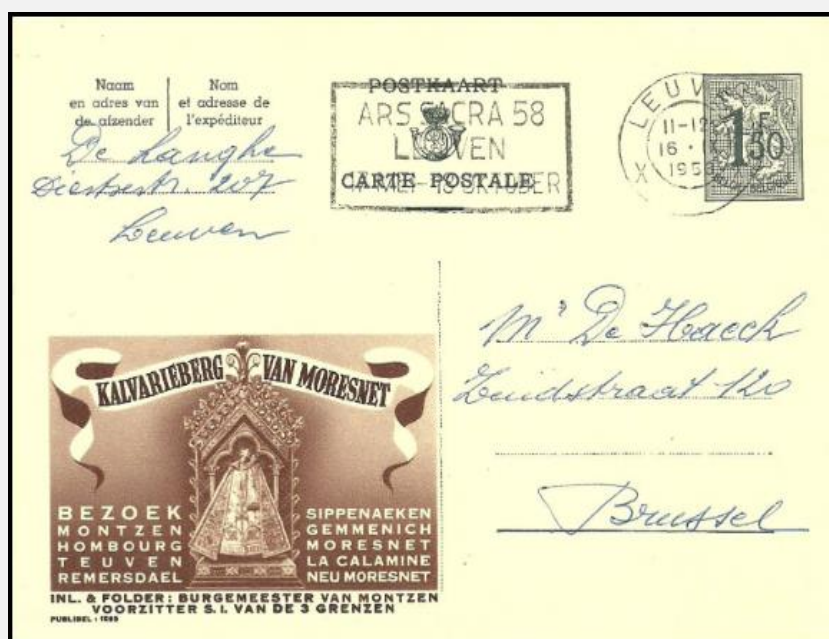 Naam
en adres van
de afzender
Nom
et adresse de
l'expéditeur
De Langhe
Diestsestr. 207
Leuven
POSTKAART
ARS SACRA 58
LEUVEN
CARTE POSTALE
LEUV
11-12
16
195
X
1F50
BELGIE-BELGIQUE
Mr De Haeck
Zuidstraat 120
Brussel
KALVARIEBERG VAN MORESNET
BEZOEK
MONTZEN
HOMBOURG
TEUVEN
REMERSDAEL
SIPPENAEKEN
GEMMENICH
MORESNET
LA CALAMINE
NEU MORESNET
INL. & FOLDER : BURGEMEESTER VAN MONTZEN
VOORZITTER S. I. VAN DE 3 GRENZEN
PUBLIBEL : 1585